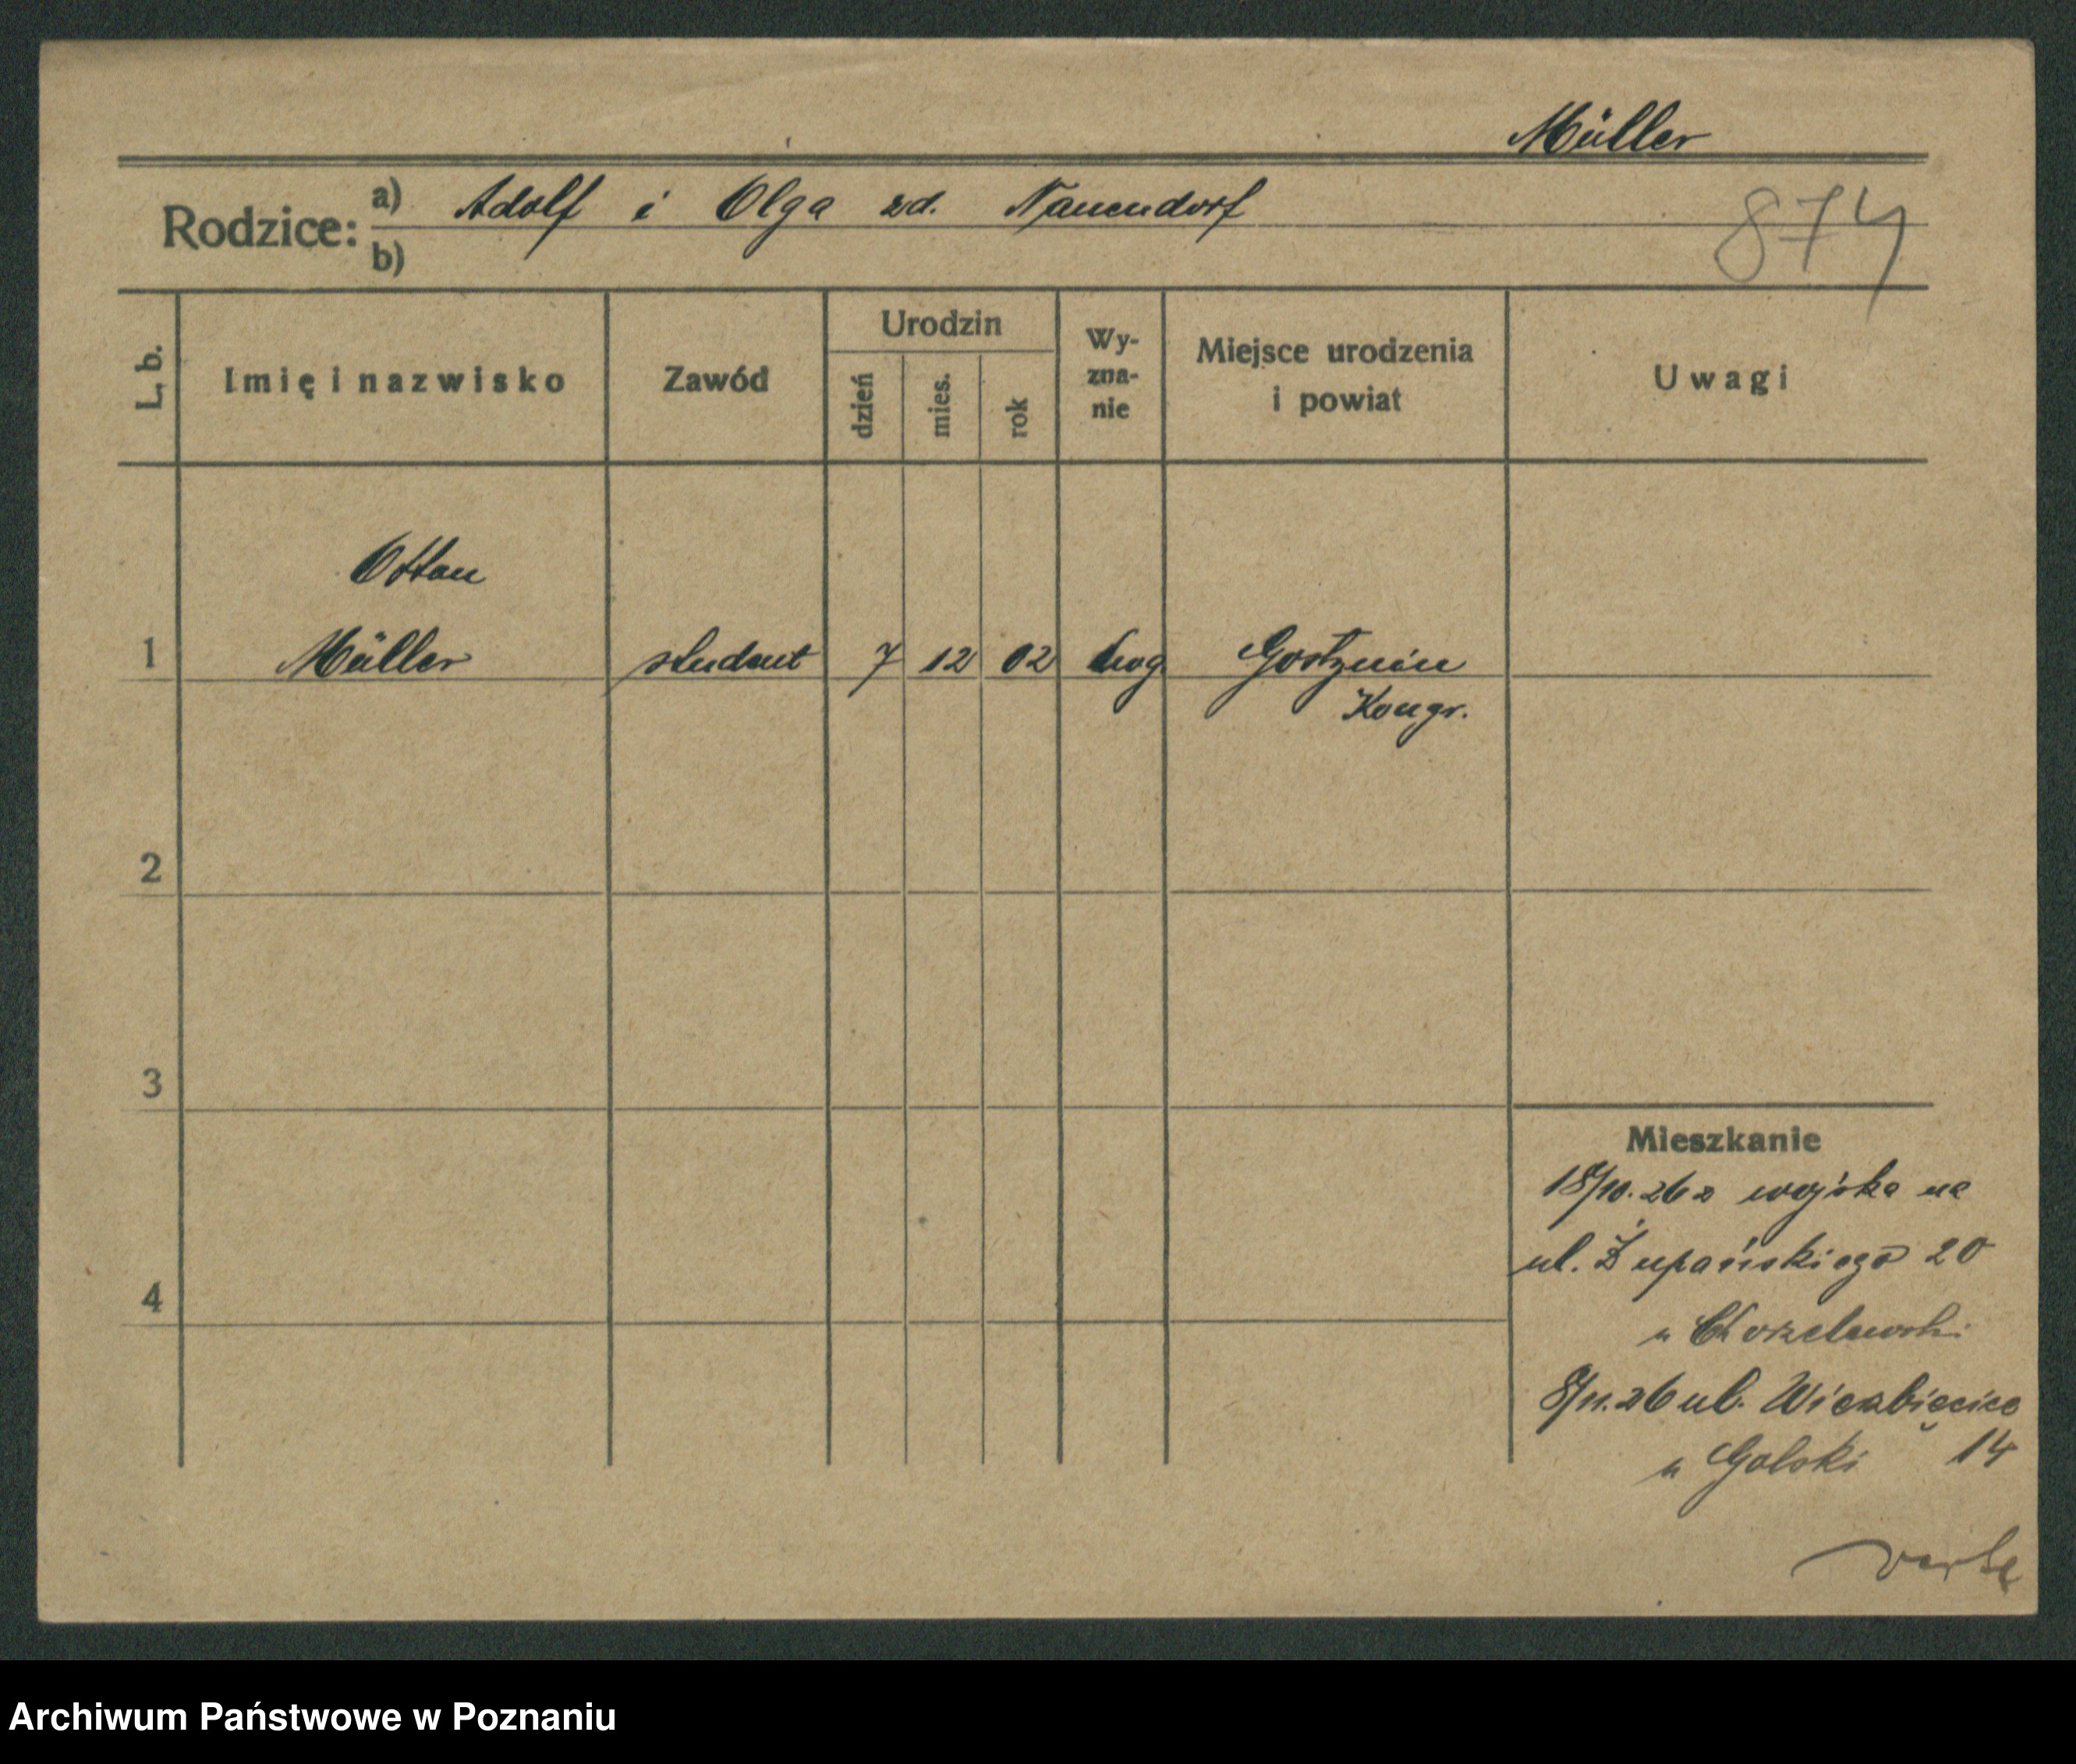 Müller
Rodzice: a) Adolf i Olga zd. Nauendorf
b)
874
L. b. Imię i nazwisko Zawód Urodzin dzień mies. rok Wy-zna-nie Miejsce urodzenia i powiat Uwagi
Otton
1 Müller student 7 12 02 Gostynin
Kongr.
2
3
4
Mieszkanie
18/10.26 z wojska na
ul. Żupańskiego 20
u
8/11.26 ul. Wierzbięcice
u Golski 14
verte
Archiwum Państwowe w Poznaniu